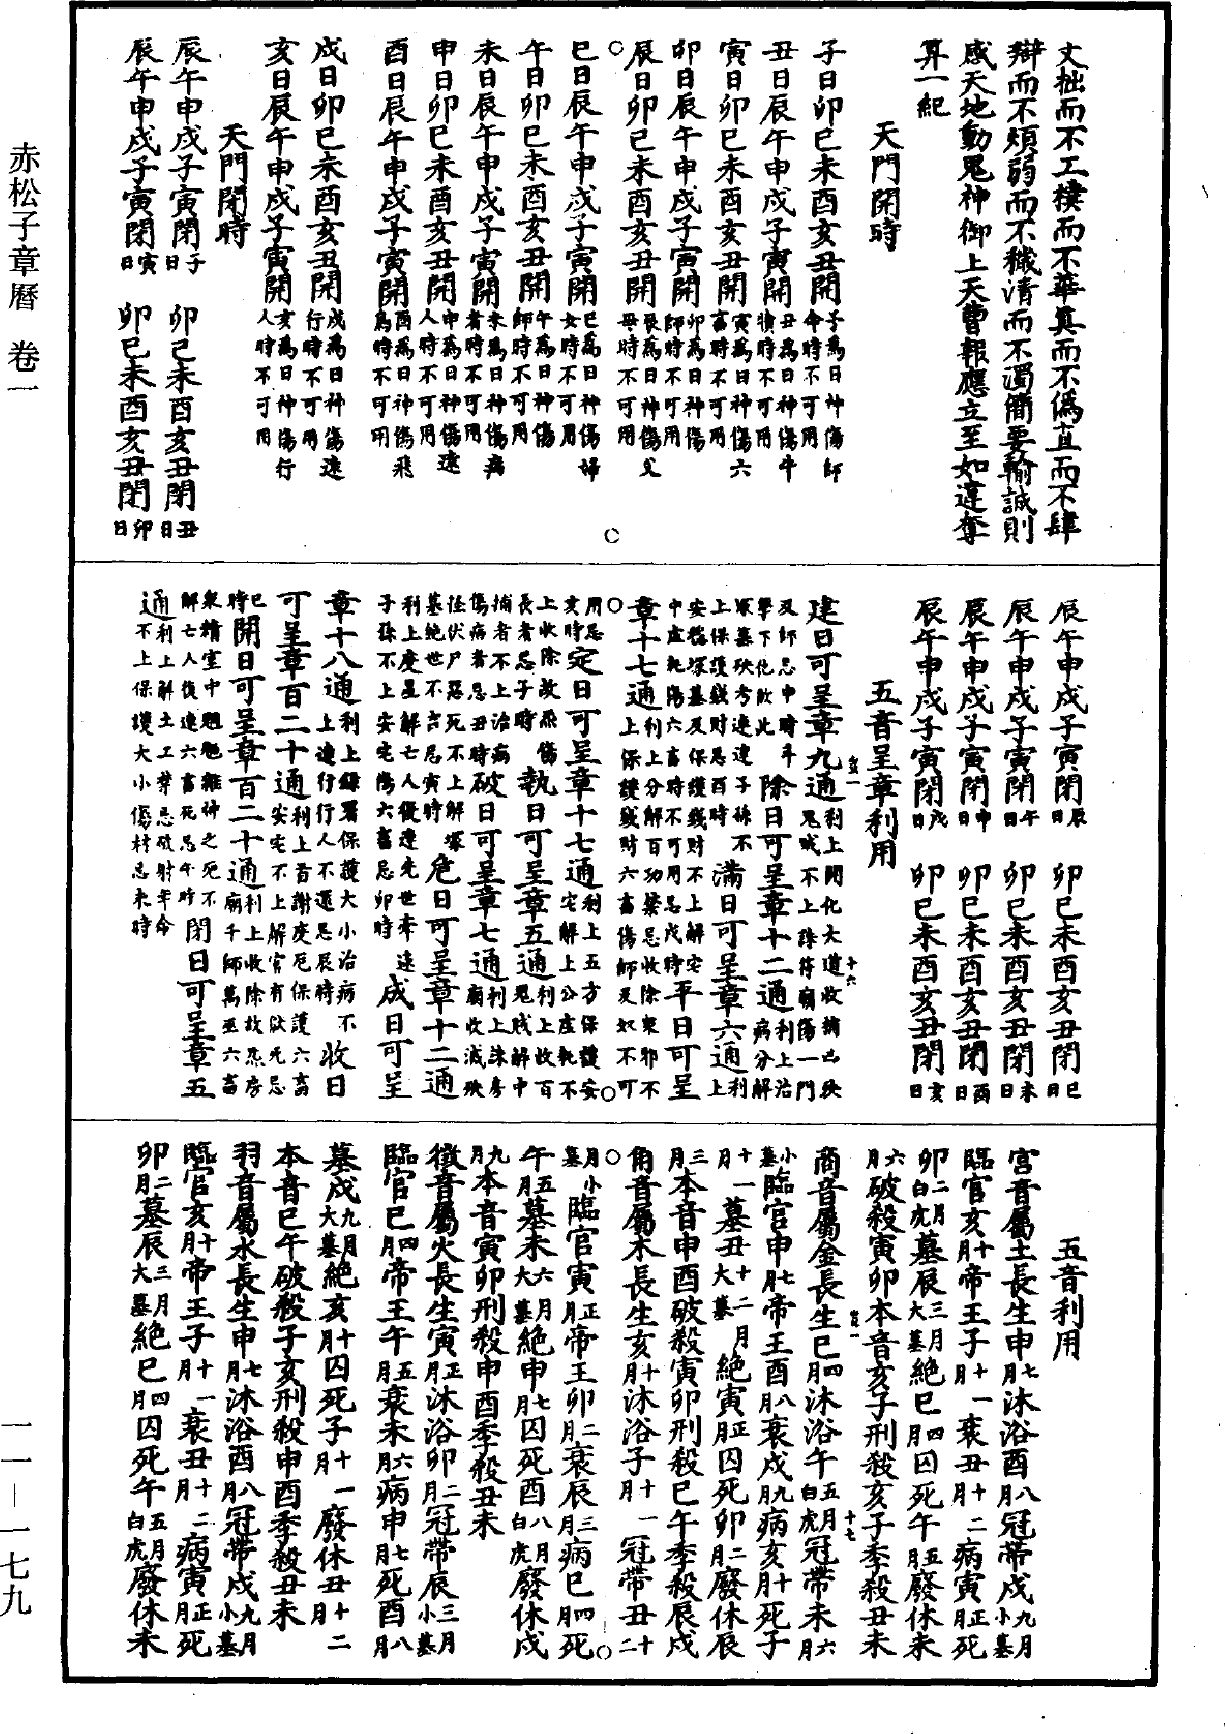 赤松子章曆　卷一
文拙而不工樸而不華真而不僞直而不肆
辯而不煩弱而不穢清而不濁簡要輸誠則
感天地動鬼神御上天曹報應立至如違奪
算一紀
天門開時
子日卯巳未酉亥丑開子爲日神傷師命時不可用
丑日辰午申戌子寅開丑爲日神傷牛犢時不可用
寅日卯巳未酉亥丑開寅爲日神傷六畜時不可用
卯日辰午申戌子寅開卯爲日神傷師時不可用
辰日卯巳未酉亥丑開辰爲日神傷父母時不可用
巳日辰午申戌子寅開巳爲日神傷婦女時不可用
午日卯巳未酉亥丑開午爲日神傷師時不可用
未日辰午申戌子寅開未爲日神傷病者時不可用
申日卯巳未酉亥丑開申爲日神傷遠人時不可用
酉日辰午申戌子寅開酉爲日神傷飛鳥時不可用
戌日卯巳未酉亥丑開戌爲日神傷遠行時不可用
亥日辰午申戌子寅開亥爲日神傷行人時不可用
天門閉時
辰午申戌子寅閉子日　卯巳未酉亥丑閉丑日
辰午申戌子寅閉寅日　卯巳未酉亥丑閉卯日
辰午申戌子寅閉辰日　卯巳未酉亥丑閉巳日
辰午申戌子寅閉午日　卯巳未酉亥丑閉未日
辰午申戌子寅閉申日　卯巳未酉亥丑閉酉日
辰午申戌子寅閉戌日　卯巳未酉亥丑閉亥日
五音呈章利用
建日可呈章九通利上開化大道收捕已殃鬼賊不上誅符廟傷一門
及師忌申時斗擊下化敗此除日可呈章十二通利上治病分解
冢墓殃考連逮子孫不上保護錢財忌酉時滿日可呈章六通利上
安穩冢墓及保護錢財不上解宅中虛耗傷六畜時不可用忌戌時平日可呈
章十七通利上分解百功禁忌收除衆邪不上保護錢財六畜傷師及奴不可
用忌亥時定日可呈章十七通利上五方保護安宅解上公虛耗不
上收除故炁傷長者忌子時執日可呈章五通利上收百鬼賊解中
捕者不上治病傷病者忌丑時破日可呈章七通利上誅房廟收滅殃
注伏尸惡死不上解冢墓絶世不吉忌寅時危日可呈章十二通
利上度星解亡人復連先世牽逮子孫不上安宅傷六畜忌卯時成日可呈
章十八通利上錄署保護大小治病不上遠行行人不還忌辰時收日
可呈章百二十通利上首謝度厄保護六畜安宅不上解官有獄凡忌
巳時開日可呈章百二十通利上收除故炁房廟千師萬巫六畜
衆精室中魍魎雜神之死不解亡人復連六畜死忌午時閉日可呈章五
通利上解土工葬忌破射年命不上保護大小傷村忌未時
五音利用
宮音屬土長生申七月沐浴酉八月冠帶戌九月小墓
臨官亥十月帝王子十一月衰丑十二月病寅正月死
卯二月白虎墓辰三月大墓絶巳四月囚死午五月廢休未
六月破殺寅卯本音亥子刑殺亥子季殺丑未
商音屬金長生巳四月沐浴午五月白虎冠帶未六月
小墓臨官申七月帝王酉八月衰戌九月病亥十月死子
十一月墓丑十二月大墓絶寅正月囚死卯二月廢休辰
三月本音申酉破殺寅卯刑殺巳午季殺辰戌
角音屬木長生亥十月沐浴子十一月冠帶丑十二
月小墓臨官寅正月帝王卯二月衰辰三月病巳四月死
午五月墓未六月大墓絶申七月囚死酉八月白虎廢休戌
九月本音寅卯刑殺申酉季殺丑未
徵音屬火長生寅正月沐浴卯二月冠帶辰三月小墓
臨官巳四月帝王午五月衰未六月病申七月死酉八月
墓戌九月大墓絶亥十月囚死子十一月廢休丑十二月
本音巳午破殺子亥刑殺申酉季殺丑未
羽音屬水長生申七月沐浴酉八月冠帶戌九月小墓
臨官亥十月帝王子十一月衰丑十二月病寅正月死
卯二月墓辰三月大墓絶巳四月囚死午五月白虎廢休未
一一—一七九